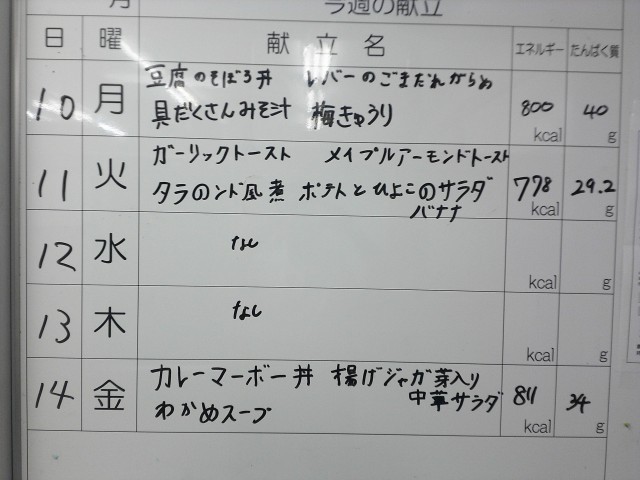 月 今週の献立
日 曜 献立名 エネルギー たんぱく質
10 月 豆腐のそぼろ丼 レバーのごまだれがらめ
具だくさんみそ汁 梅きゅうり 800 kcal 40 g
11 火 ガーリックトースト メイプルアーモンドトースト
タラのンド風煮 ポテトとひよこのサラダ 778 kcal 29.2 g
バナナ
12 水 なし kcal g
13 木 なし kcal g
14 金 カレーマーボー丼 揚げジャガ芽入り
中華サラダ 811 kcal 34 g
わかめスープ